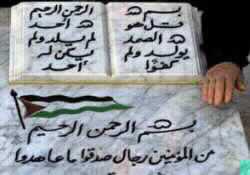 بسم الله الرحمن الرحيم
قل هو الله احد
الله الصمد لم يلد ولم
يولد ولم يكن له
كفوا احد
بسم الله الرحمن الرحيم
من المؤمنين رجال صدقوا ما عاهدوا